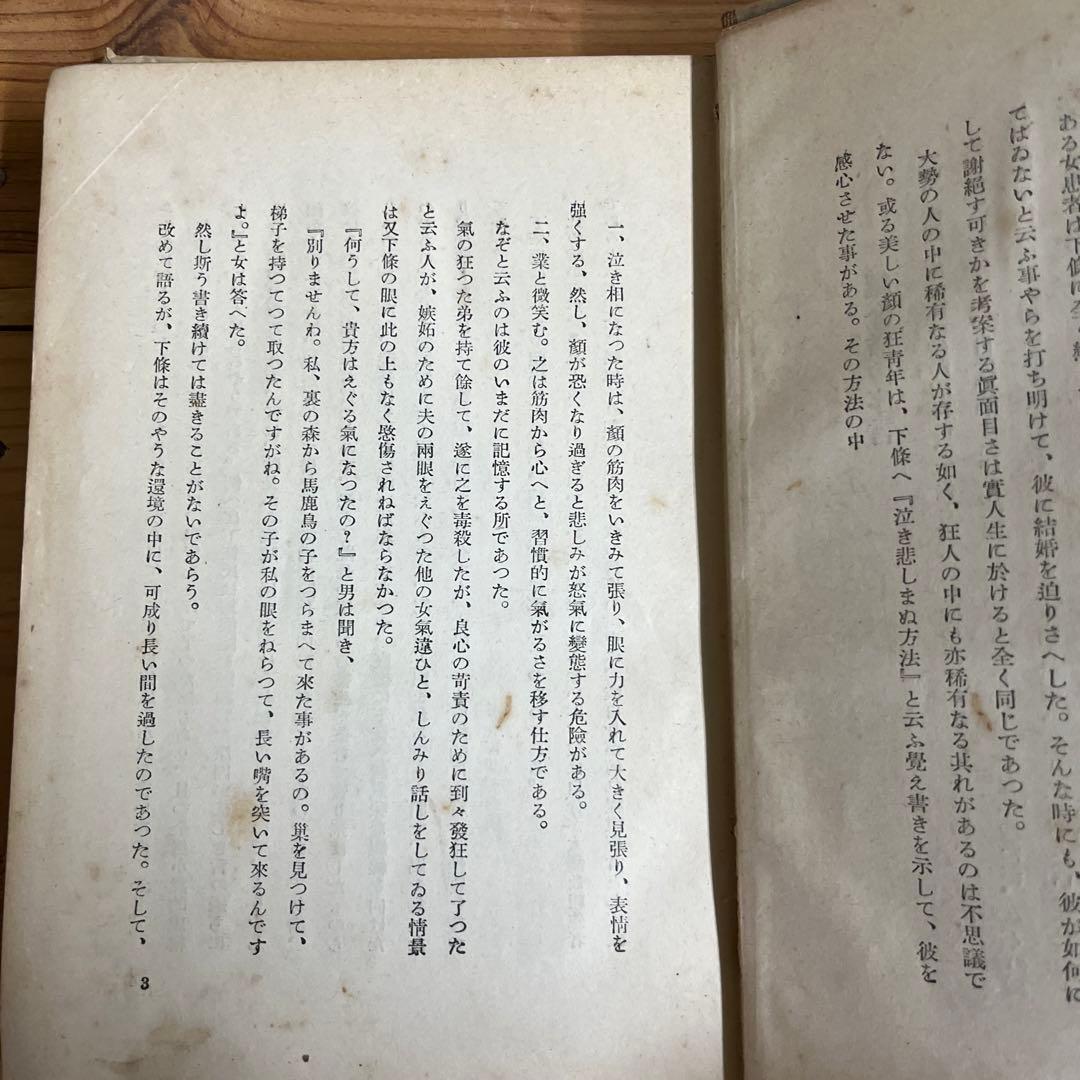 ある女患者は下條に全
てばゐないと云ふ事やらを打ち明けて、彼に結婚を迫りさへした。そんな時にも、彼が如何に
して謝絶す可きかを考案する眞面目さは實人生に於けると全く同じであつた。
大勢の人の中に稀有なる人が存する如く、狂人の中にも亦稀有なる其れがあるのは不思議で
ない。或る美しい顏の狂青年は、下條へ『泣き悲しまぬ方法』と云ふ覺え書きを示して、彼を
感心させた事がある。その方法の中
一、泣き相になった時は、顏の筋肉をいきみて張り、眼に力を入れて大きく見張り、表情を
强くする、然し、顏が恐くなり過ぎると悲しみが怒氣に變態する危險がある。
二、業と微笑む。之は筋肉から心へと、習慣的に氣がるさを移す仕方である。
なぞと云ふのは彼のいまだに記憶する所であつた。
氣の狂つた弟を持て餘して、遂に之を毒殺したが、良心の苛責のために到々發狂して了つた
と云ふ人が、嫉妬のために夫の兩眼をえぐつた他の女氣違ひと、しんみり話しをしてゐる情景
は又下條の眼に此の上もなく愍傷されねばならなかつた。
『何うして、貴方はえぐる氣になつたの?』と男は聞き、
『別りませんわ。私、裏の森から馬鹿鳥の子をつらまへて來た事があるの。巢を見つけて、
梯子を持つてつて取つたんですがね。その子が私の眼をねらつて、長い嘴を突いて來るんです
よ。』と女は答へた。
然し斯う書き續けては盡きることがないであらう。
改めて語るが、下條はそのやうな環境の中に、可成り長い間を過したのであつた。そして、
3